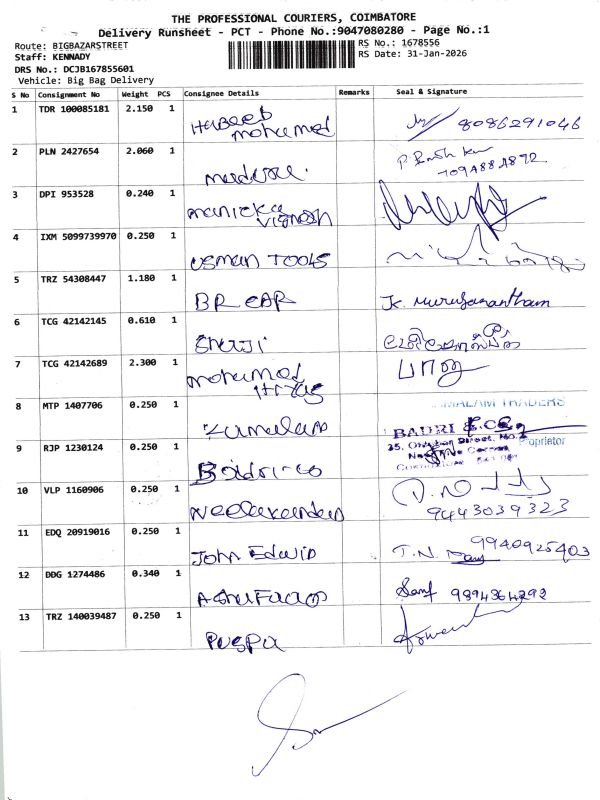 THE PROFESSIONAL COURIERS, COIMBATORE
Delivery Runsheet - PCT - Phone No.:9047080280 - Page No.:1
Route: BIGBAZARSTREET
Staff: KENNADY
DRS No.: DCJB167855601
Vehicle: Big Bag Delivery
RS No.: 1678556
RS Date: 31-Jan-2026
S No Consignment No Weight PCS Consignee Details Remarks Seal & Signature
1 TDR 100085181 2.150 1 Habeeb mohamed 8086291046
2 PLN 2427654 2.060 1
3 DPI 953528 0.240 1 manicka vignesh
4 IXM 5099739970 0.250 1 usman Tools
5 TRZ 54308447 1.180 1 BR CAR K. Muruganantham
6 TCG 42142145 0.610 1
7 TCG 42142689 2.300 1 mohamed
8 MTP 1407706 0.250 1 MALAM TRADERS
Proprietor
9 RJP 1230124 0.250 1 BADRI & CO.
10 VLP 1160906 0.250 1 9443039323
11 EDQ 20919016 0.250 1 John Edwin T.N. 9940925403
12 DDG 1274486 0.340 1 9894364292
13 TRZ 140039487 0.250 1 Puspa